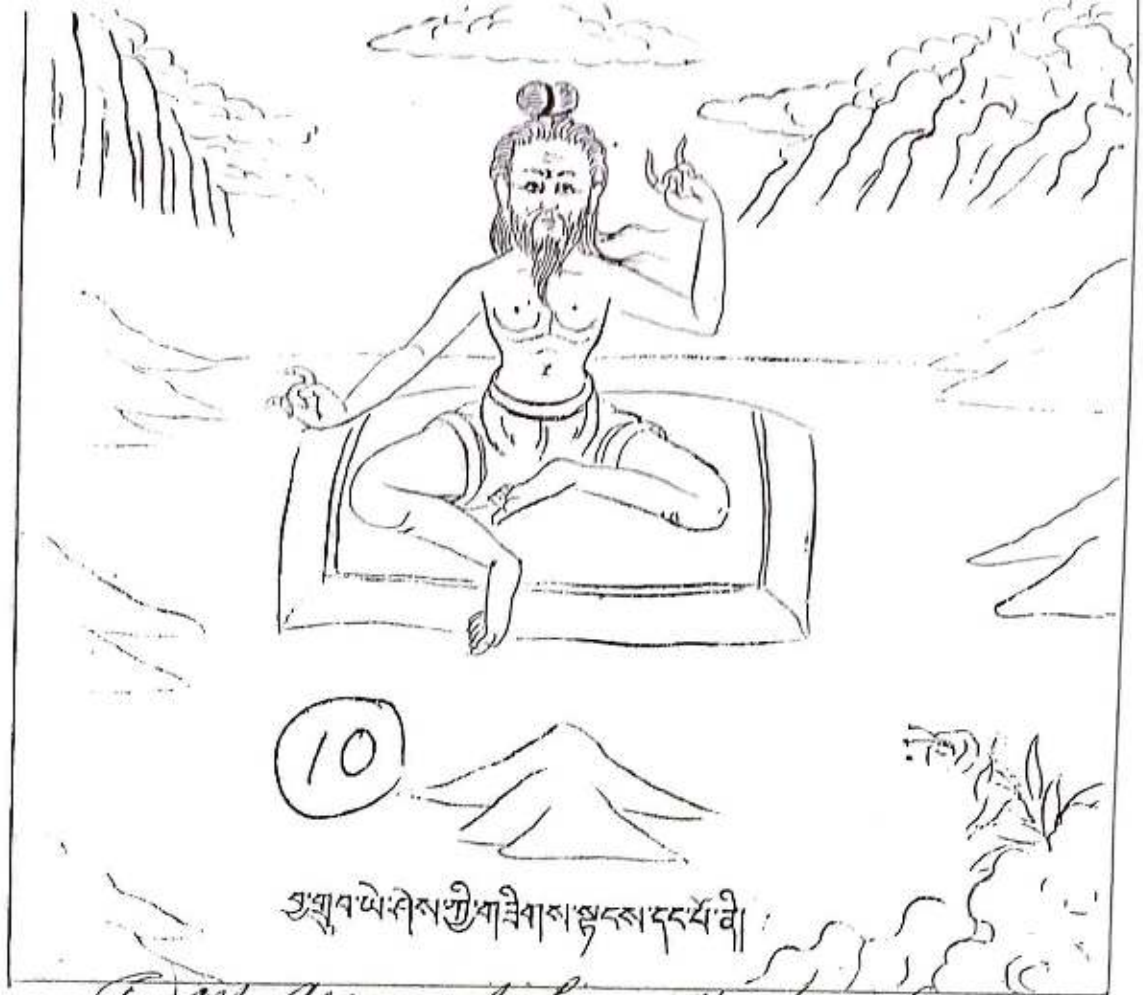 10
བྱ་གྲུབ་ཡེ་ཤེས་ཀྱི་གཟིགས་སྟངས་དང་པོ་ནི།